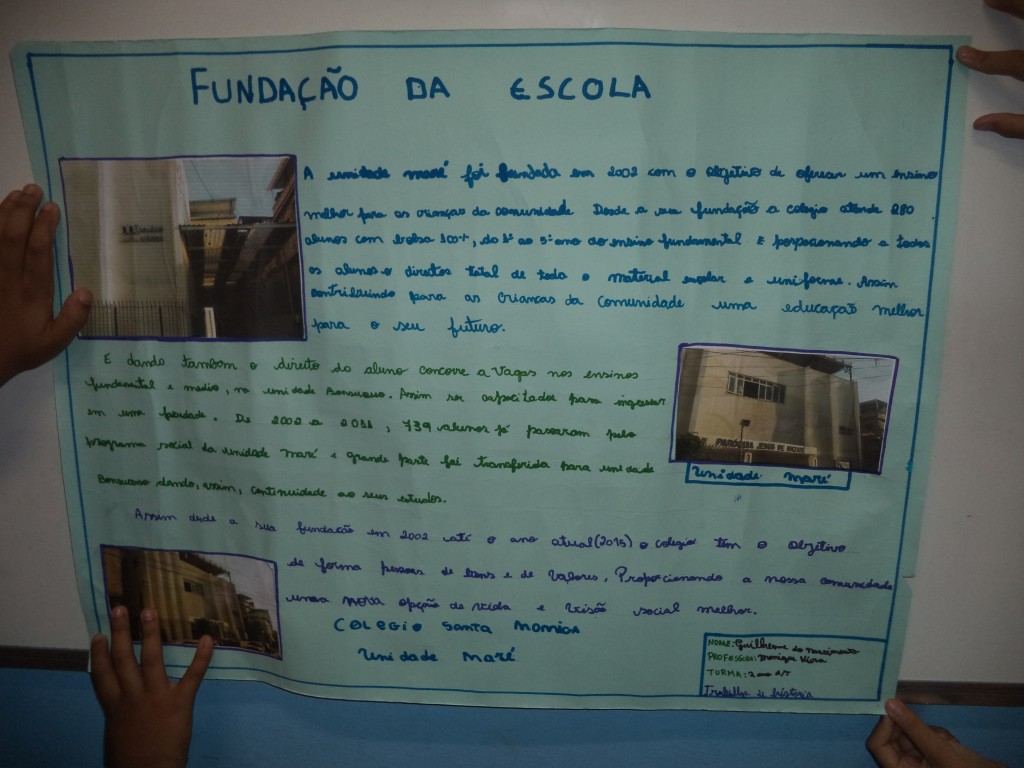 FUNDAÇÃO DA ESCOLA
A unidade maré foi fundada em 2002 com o objetivo de oferecer um ensino
melhor para as crianças da comunidade Desde a sua fundação a colegio atende 280
alunos com bolsa 100%, do 1º ao 5º ano do ensino fundamental E porporcionando a todos
os alunos o direitos total de todo o material escolar e uniforme. Assim
contribuindo para as crianças da comunidade uma educação melhor
para o seu futuro.
E dando também o direito do aluno concorre a vagas nos ensinos
fundamental e medio, na unidade Bonsucesso. Assim ser capacitados para ingressar
em uma faculdade. De 2002 a 2011, 739 alunos já passaram pelo
programa social da unidade maré e grande parte foi transferida para unidade
Bonsucesso dando, assim, continuidade ao seus estudos.
PARÓQUIA JESUS DE NAZARÉ
Unidade maré
Assim desde a sua fundação em 2002 até o ano atual (2015) o colegio têm o objetivo
de forma pessoas de bens e de valores, Proporcionando a nossa comunidade
uma nova opção de vida e visão social melhor.
COLEGIO Santa Monnica
Unidade Maré
NOME: Guilherme do nascimento
PROFESSORA: Monique Vieira
TURMA: 2 ano
Trabalho de história